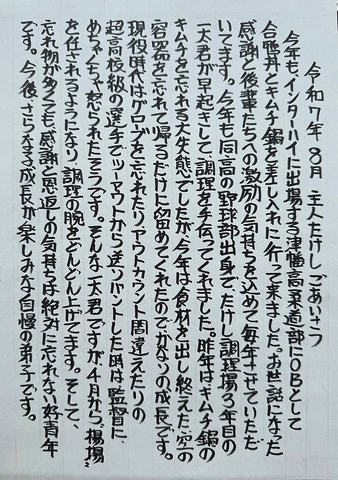 令和7年 8月 主人たけし ごあいさつ
今年もインターハイに出場する津幡高柔道部にOBとして
合宿丹とキムチ鍋を差し入れに行って来ました。お世話になった
感謝と後輩たちへの激励の気持ちを込めて毎年させていただ
いてます。今年も同高の野球部出身で、たけし調理場3年目の
一太君が早起きして、調理を手伝ってくれました。昨年はキムチ鍋の
キムチを忘れる大失態でしたが、今年は食材を出し終えた空の
容器を忘れて帰るだけに留めてくれたのでかなりの成長です。
現役時代はグローブを忘れたりアウトカウント間違えたりの
超高校級の選手でツーアウトから送りバントした時は監督に
めちゃくちゃ怒られたそうです。そんな一太君ですが4月から"揚場"
を任されるようになり、調理の腕をどんどん上げてます。そして、
忘れ物が多くても、感謝と恩返しの気持ちは絶対に忘れない好青年
です。今後さらなる成長が楽しみな自慢の弟子です。